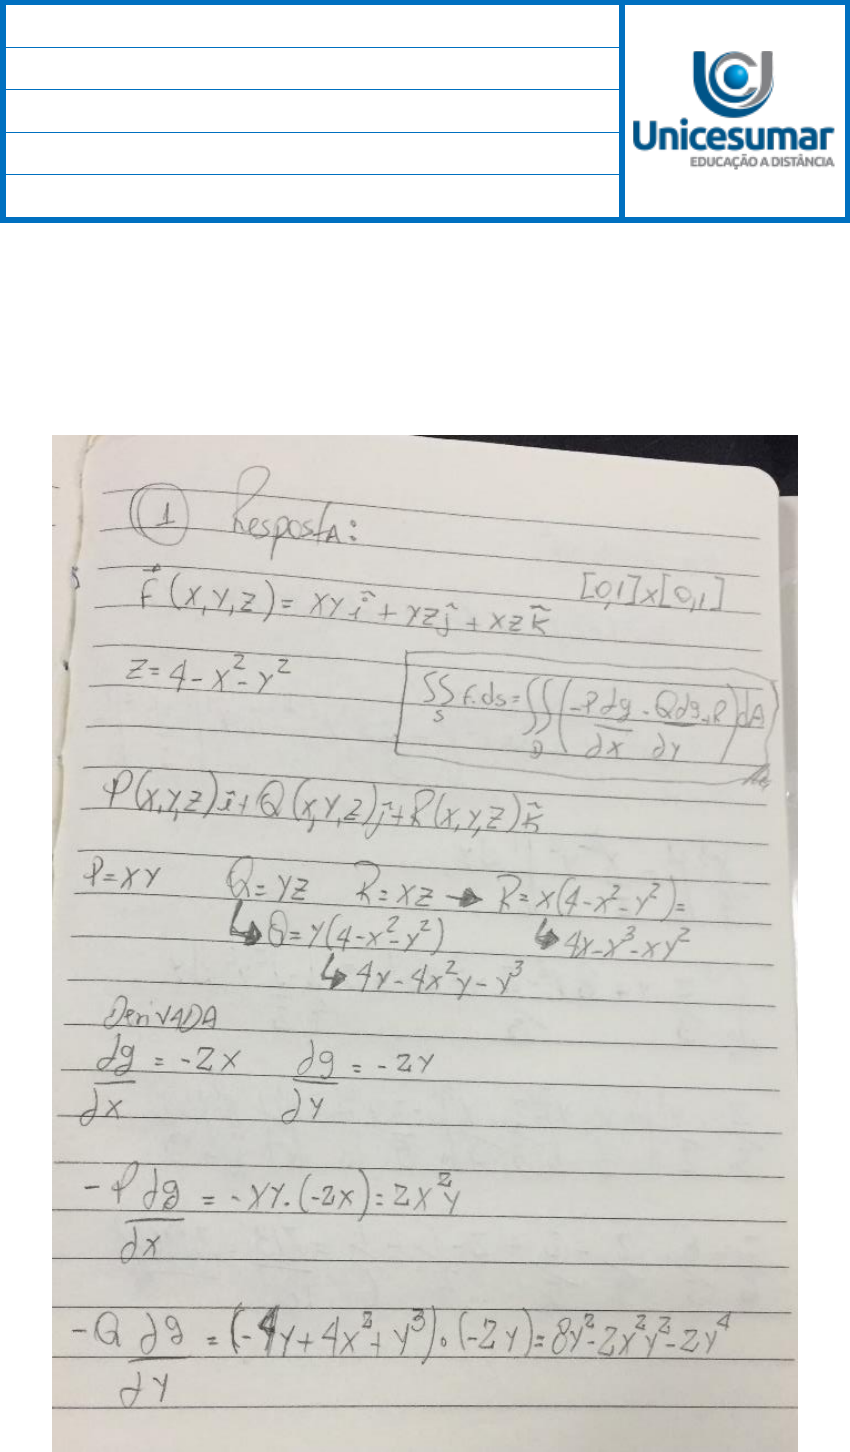 Unicesumar
EDUCAÇÃO A DISTÂNCIA
1 Resposta:
F(x,y,z) = xy î + yz ĵ + xz k̂ [0,1]x[0,1]
z = 4 - x² - y²
∬s F.ds = ∬D (-P dg/dx - Q dg/dy + R) dA
P(x,y,z) î + Q(x,y,z) ĵ + R(x,y,z) k̂
P = xy Q = yz R = xz → R = x(4 - x² - y²) =
↳ Q = y(4 - x² - y²) ↳ 4x - x³ - xy²
↳ 4y - 4x²y - y³
Derivada
dg/dx = -2x dg/dy = -2y
-P dg/dx = -xy.(-2x) = 2x²y
-Q dg/dy = (-4y + 4x² + y³).(-2y) = 8y² - 2x²y² - 2y⁴